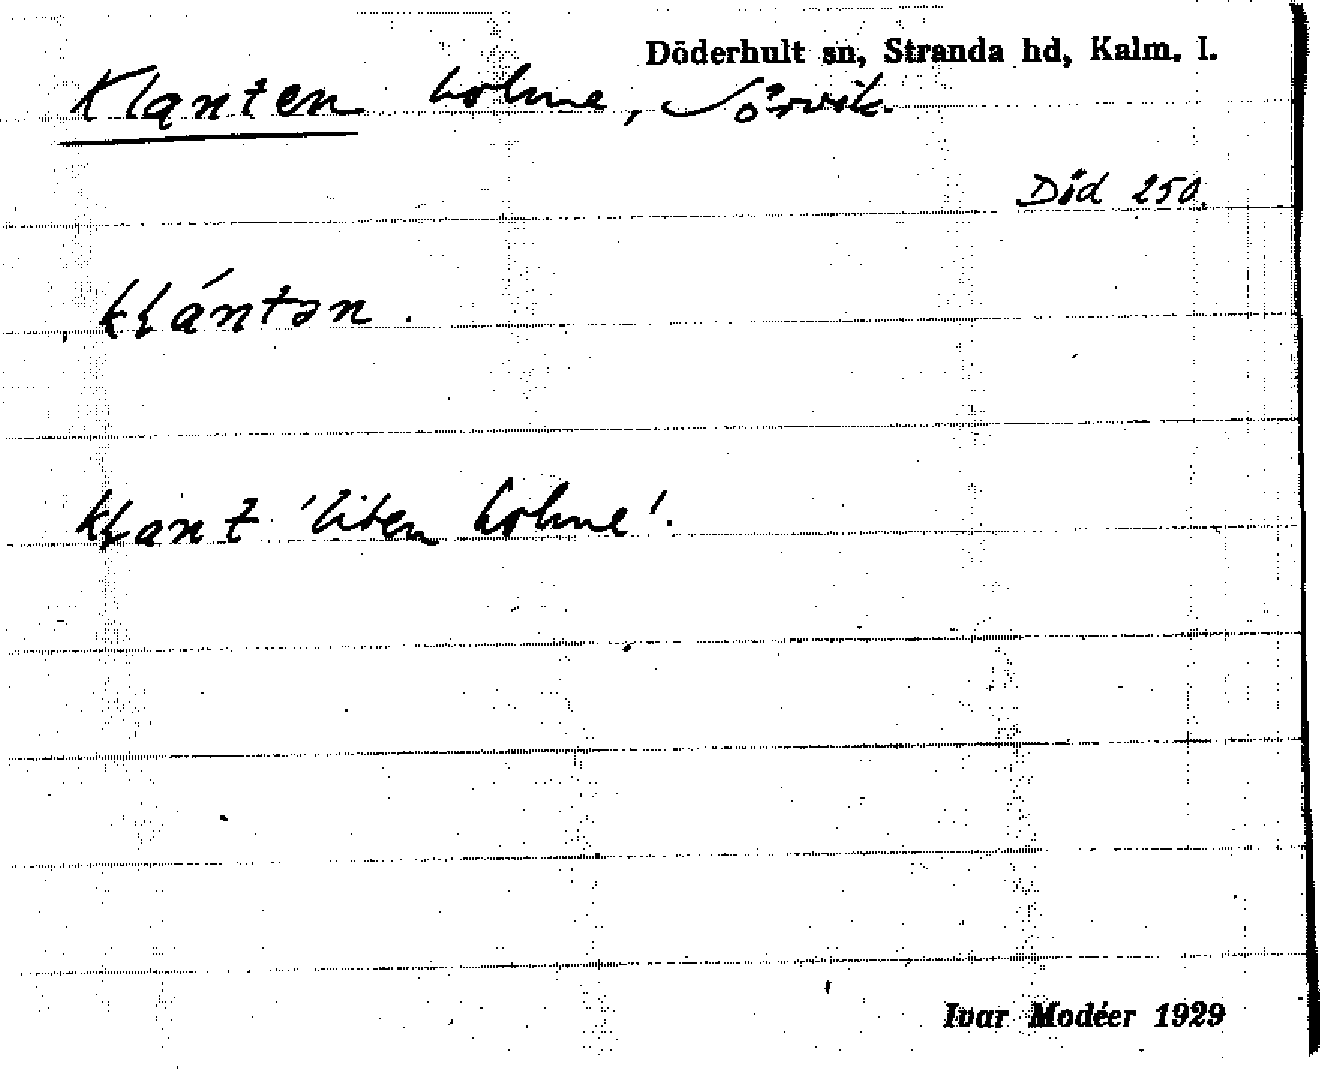 Döderhult sn, Stranda hd, Kalm. l.
Klanten holme, Sörvik.
Död 250.
kḷántən.
kḷant 'liten holme'.
Ivar Modéer 1929